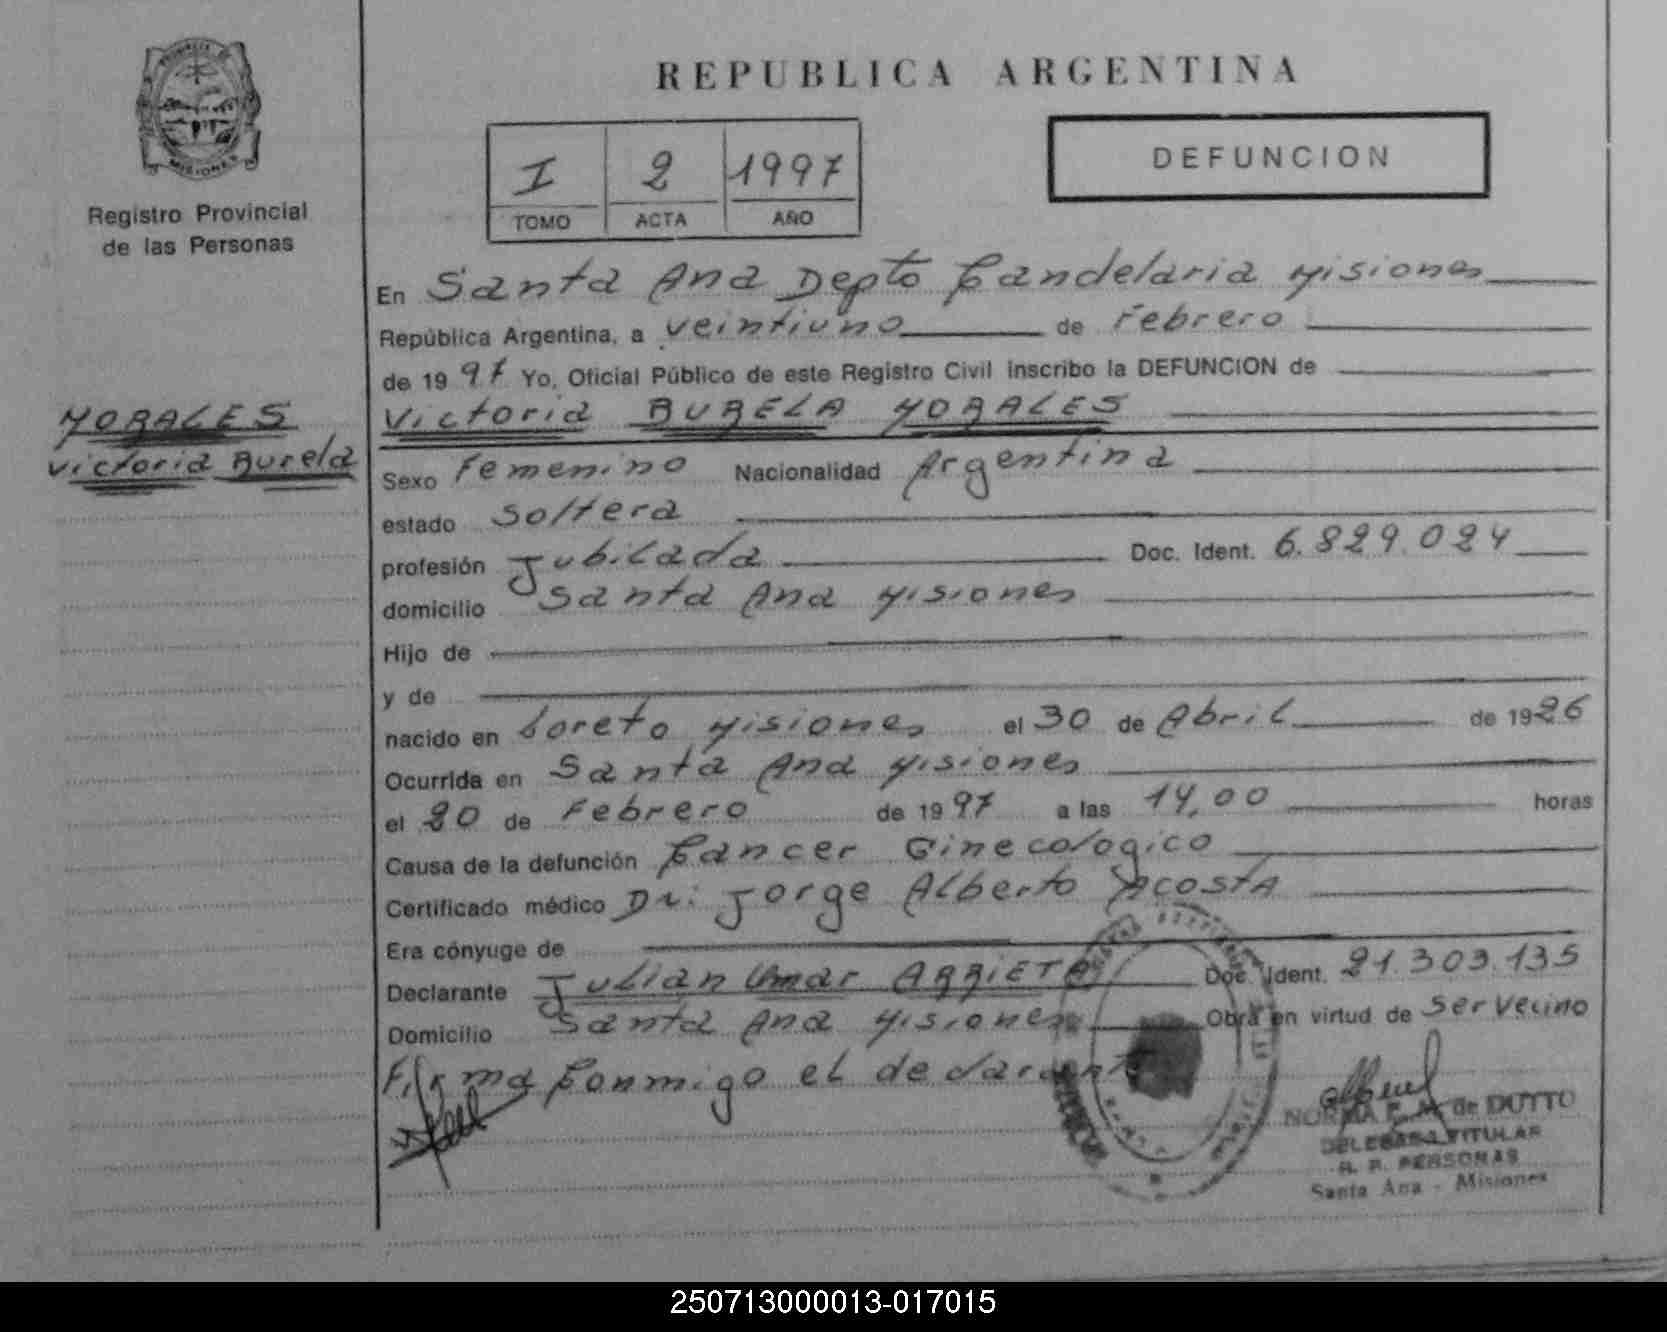 REPUBLICA ARGENTINA
I 2 1997
TOMO ACTA AÑO
DEFUNCION
MISIONES
Registro Provincial
de las Personas
MORALES
Victoria Burela
En Santa Ana Depto Candelaria Misiones
República Argentina, a veintiuno de Febrero
de 1997 Yo, Oficial Público de este Registro Civil inscribo la DEFUNCION de
Victoria BURELA MORALES
Sexo Femenino Nacionalidad Argentina
estado Soltera
profesión Jubilada Doc. Ident. 6.829.024
domicilio Santa Ana Misiones
Hijo de
y de
nacido en Loreto Misiones el 30 de Abril de 1926
Ocurrida en Santa Ana Misiones
el 20 de Febrero de 1997 a las 14,00 horas
Causa de la defunción Cancer Ginecologico
Certificado médico Dr: Jorge Alberto ACOSTA
Era cónyuge de
Declarante Julian Omar ARRIETA Doc. Ident. 21.303.135
Domicilio Santa Ana Misiones Obra en virtud de ser Vecino
Firma Conmigo el declarante
NORMA E. M. de DUTTO
DELEGADA TITULAR
R. P. PERSONAS
Santa Ana - Misiones
250713000013-017015